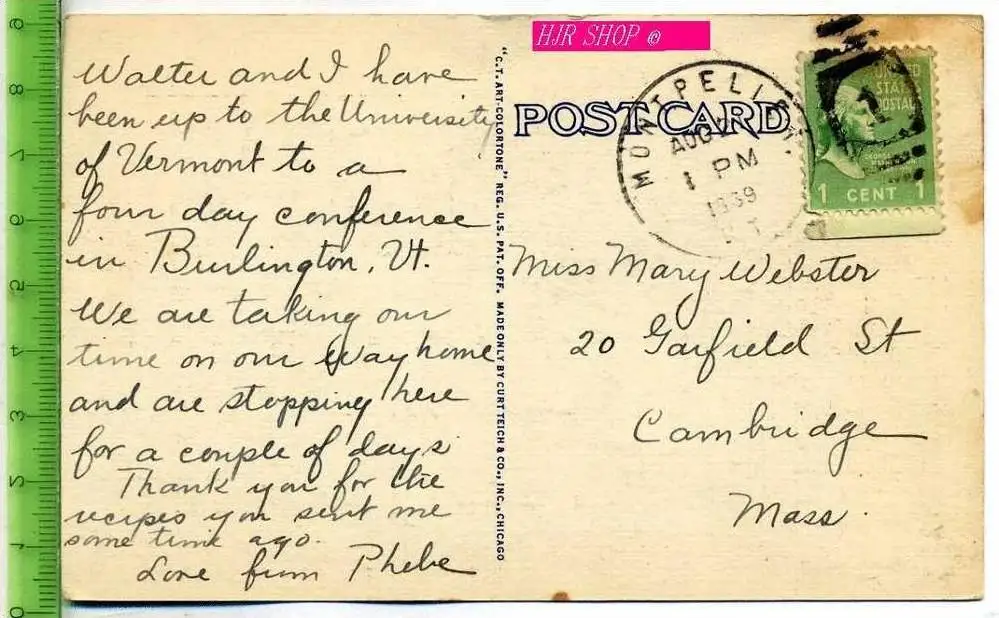 HJR SHOP ©
Walter and I have
been up to the University
of Vermont to a
four day conference
in Burlington, Vt.
We are taking our
time on our way home
and are stopping here
for a couple of days
Thank you for the
recipes you sent me
some time ago.
Love from Phebe
"C.T. ART-COLORTONE" REG. U.S. PAT. OFF. MADE ONLY BY CURT TEICH & CO., INC., CHICAGO
POST CARD
MONTPELIER
AUG
1 PM
1939
UNITED
STATES
POSTAGE
1 CENT 1
Miss Mary Webster
20 Garfield St
Cambridge
Mass.
8
7
6
5
4
3
2
1
0